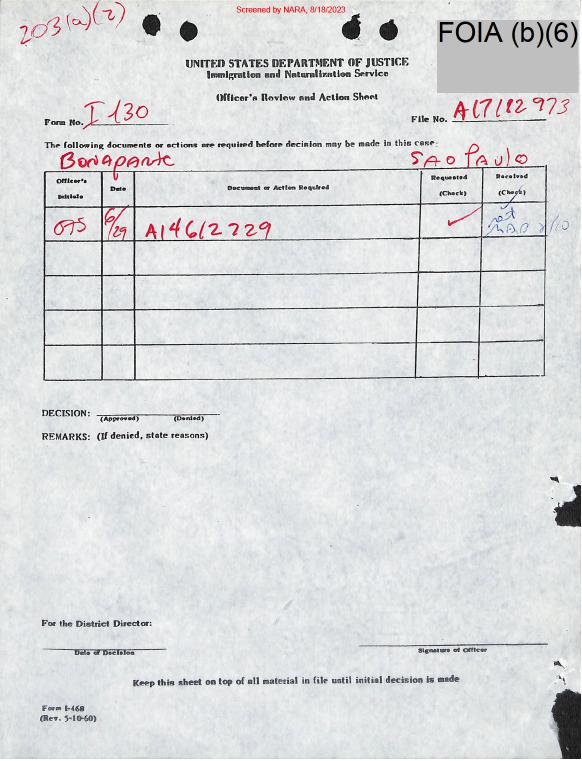 Screened by NARA, 8/18/2023
203(a)(2)
FOIA (b)(6)
UNITED STATES DEPARTMENT OF JUSTICE
Immigration and Naturalization Service
Officer's Review and Action Sheet
Form No. I 130
File No. A17112973
The following documents or actions are required before decision may be made in this case:
Bonaparte SAO PAULO
Officer's Initials Date Document or Action Required Requested (Check) Received (Check)
6/29 A14612729 ✓
DECISION:
(Approved) (Denied)
REMARKS: (If denied, state reasons)
For the District Director:
Date of Decision Signature of Officer
Keep this sheet on top of all material in file until initial decision is made
Form I-468
(Rev. 5-10-60)